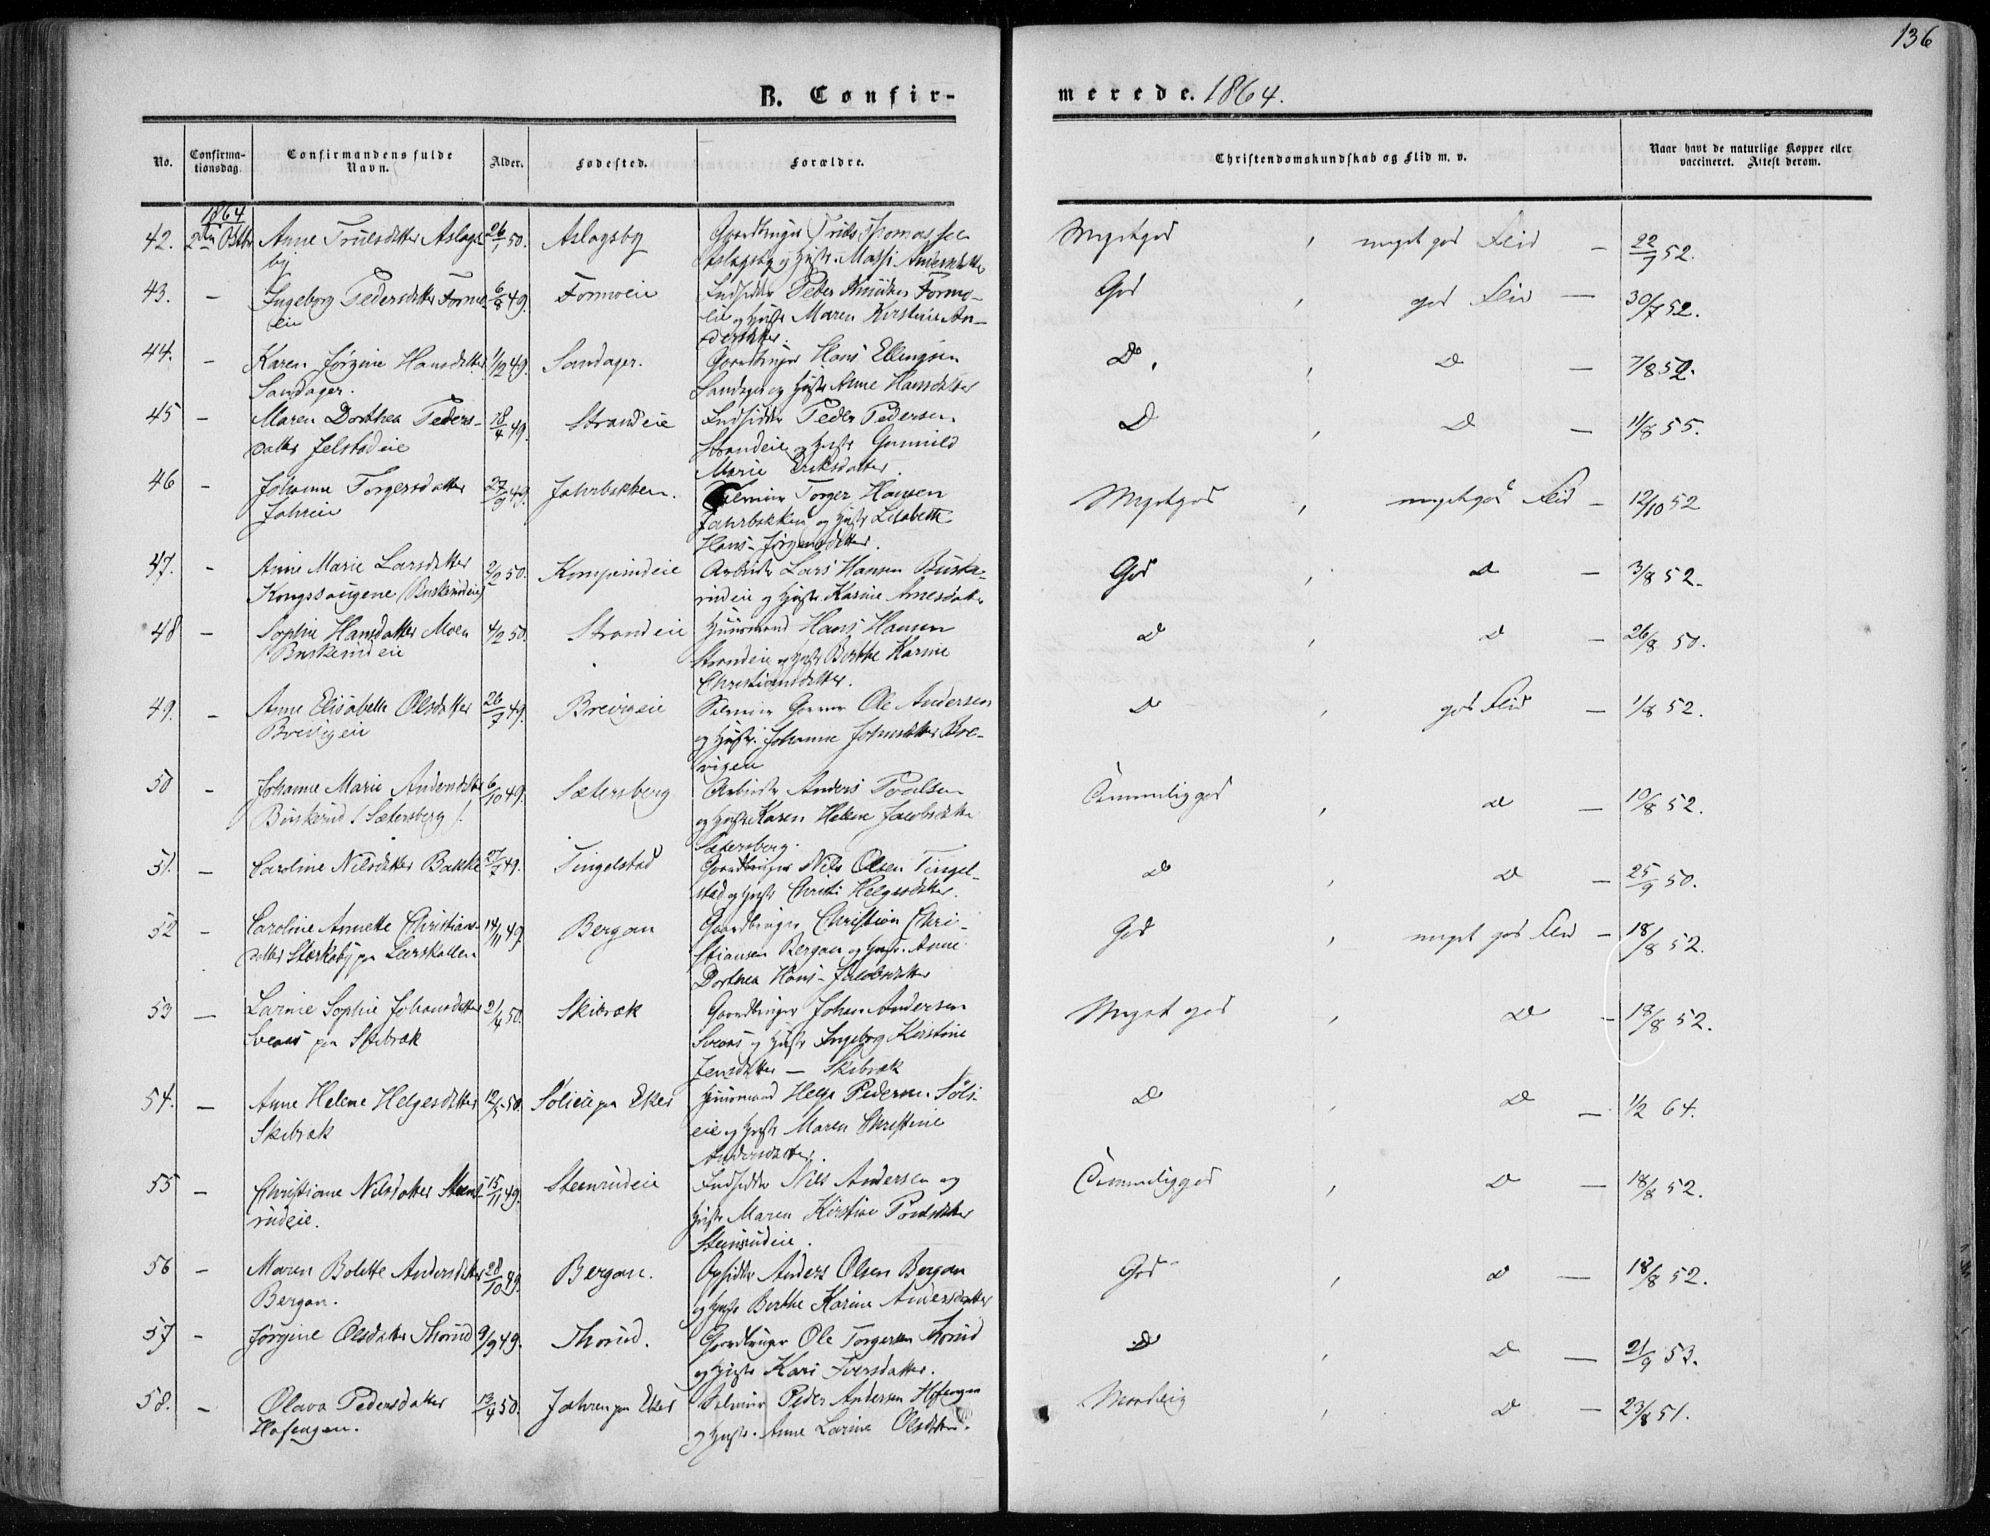 136
B. Confirmerede. 1864.
No. Confirmationsdag. Confirmandens fulde Navn. Alder. Fødested. Forældre. Christendomskundskab og Flid m. v. Naar havt de naturlige Kopper eller vaccineret. Attest derom.
1864
42. 2den Anne Trulsdatter Aslagsby 26/1 50. Aslagsby Gaardbruger Truls Thomassen Aslagsby og Hustr. Anersdatter Megetgod , meget god Flid — 22/7 52.
43. — Ingeborg Pedersdatter Formoeie 6/8 49. Formoeie Indsidder Peder Formoeie og Hustr Maren Kirstine Andersdatter. God , god Flid — 30/7 52.
44. — Karen Jørgine Hansdatter Sandager. 1/12 49. Sandager. Gaardbruger Hans Ellingsen Sandager og Hustr Anne Hansdatter D. , D — 7/8 52.
45 — Maren Dorthea Pedersdatter Jelstadeie 18/4 49. Strandeie Indsidder Peder Pedersen Strandeie og Hustr Gunnild Marie Eriksdatter. D , D — 11/8 55.
46 — Johanne Torgersdatter Jahreie 27/9 49. Jahrbakken. Selveier Torger Hansen Jahrbakken og Hustr Lisabeth Hans-Jørgensdatter. Megetgod , megetgod Flid — 12/10 52
47. — Anne Marie Larsdatter Kongssaugene (Buskerudeie) 2/2 50. Komperudeie Arbeider Lars Hansen Buskerudeie og Hustr. Karine Arnesdatter God , D — 3/8 52.
48 — Sophie Hansdatter Moen /Buskerudeie 4/2 50. Strandeie Huusmand Hans Hansen Strandeie og Hustr Berthe Karine Christiansdatter. D , D — 26/8 50.
49. — Anne Elisabeth Olsdatter Brevigeie 26/7 49. Brevigeie Selveier Ole Andersen og Hustr. Johanne Johnsdatter Brevigen D , god Flid — 1/8 52.
50 — Johanne Marie Andersdatter Buskerud /Sætersberg/. 6/10 49. Sætersberg Arbeider Anders Povlsen og Hustr Karen Helene Jacobsdatter Sætersberg. Temmelig god , D — 10/8 52.
51. — Caroline Nilsdatter Bakke 27/7 49. Tingelstad Gaardbruger Nils Olsen Tingelstad og Hustr Christi Helgesdatter. D , D — 25/9 50.
52 — Caroline Annette Christiansdatter Størkeby paa Leerskallen 14/11 49. Bergan Gaardbruger Christian Christiansen Bergan og Hustr. Anne Dorthea Hans-Jacobsdatter God , meget god Flid — 18/8 52.
53 — Larine Sophie Johansdatter Sveaas paa Skibræk 21/4 50. Skibræk Gaardbruger Johan Andersen Sveaas og Hustr Ingeborg Kirstine Jensdatter — Skibræk Meget god , D — 18/8 52.
54. — Anne Helene Helgesdatter Skibræk 12/5 50. Solieie paa Eker Huusmand Helge Pedersen Solieie og Hustr Maren Christine Andersdatter. D , D — 1/2 64.
55 — Christiane Nilsdatter Steensrudeie. 15/11 49. Steensrudeie Indsidder Nils Andersen og Hustr Maren Kirstine Povelsdatter Steensrudeie. Temmelig god , D — 18/8 52.
56 — Maren Bolette Andersdatter Bergan. 28/10 49. Bergan. Opsidder Anders Olsen Bergan og Hustr Berthe Karine Andersdatter God , D — 18/8 52.
57 — Jørgine Olsdatter Thorud 9/9 49. Thorud. Gaardbruger Ole Torgersen Thorud og Hustr Kari Iversdatter. D , D — 21/9 53.
58. — Olava Pedersdatter Hofengen. 13/4 50. Jahren paa Eker Selveier Peder Andersen Hofengen og Hustr. Anne Larine Olsdatter. Maadelig , D — 23/8 51.